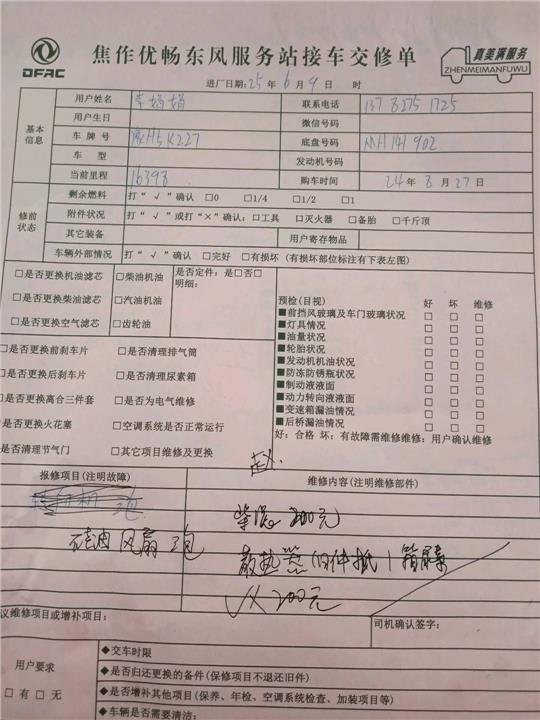 DFAC
焦作优畅东风服务站接车交修单
真美满服务
ZHENMEIMANFUWU
进厂日期:25 年 6 月 9 日 时
基本信息
用户姓名
联系电话
用户生日
微信号码
车 牌 号 豫H5K227
底盘号码 MH141902
车 型
发动机号码
当前里程 16398
购车时间 24年8月27日
修前状态
剩余燃料 打“√”确认 □0 □1/4 □1/2 □1
附件状况 打“√”或打“×”确认:□工具 □灭火器 □备胎 □千斤顶
其它装备
用户寄存物品
车辆外部情况 打“√”确认 □完好 □有损坏(有损坏部位标注有下表左图)
□是否更换机油滤芯 □柴油机油 是否定件:是□否□
明细:
□是否更换柴油滤芯 □汽油机油
□是否更换空气滤芯 □齿轮油
预检(目视) 好 坏 维修
■前挡风玻璃及车门玻璃状况 □ □ □
■灯具情况 □ □ □
■油量状况 □ □ □
■轮胎状况 □ □ □
■发动机机油状况 □ □ □
■防冻防锈瓶状况 □ □ □
■制动液液面 □ □ □
■动力转向液液面 □ □ □
■变速箱漏油情况 □ □ □
■后桥漏油情况 □ □ □
好:合格 坏:有故障需维修维修:用户确认维修
□是否更换前刹车片 □是否清理排气筒
□是否更换后刹车片 □是否清理尿素箱
□是否更换离合三件套 □是否为电气维修
□是否更换火花塞 □空调系统是否正常运行
是否清理节气门 □其它项目维修及更换
报修项目(注明故障)
维修内容(注明维修部件)
200元
风扇
散热器 旧件抵1箱尿素
200元
议维修项目或增补项目:
司机确认签字:
用户要求
□有 □无
◆交车时限
◆是否归还更换的备件(保修项目不退还旧件)
◆是否增补其他项目(保养、年检、空调系统检查、加装项目等)
◆车辆是否需要清洁: